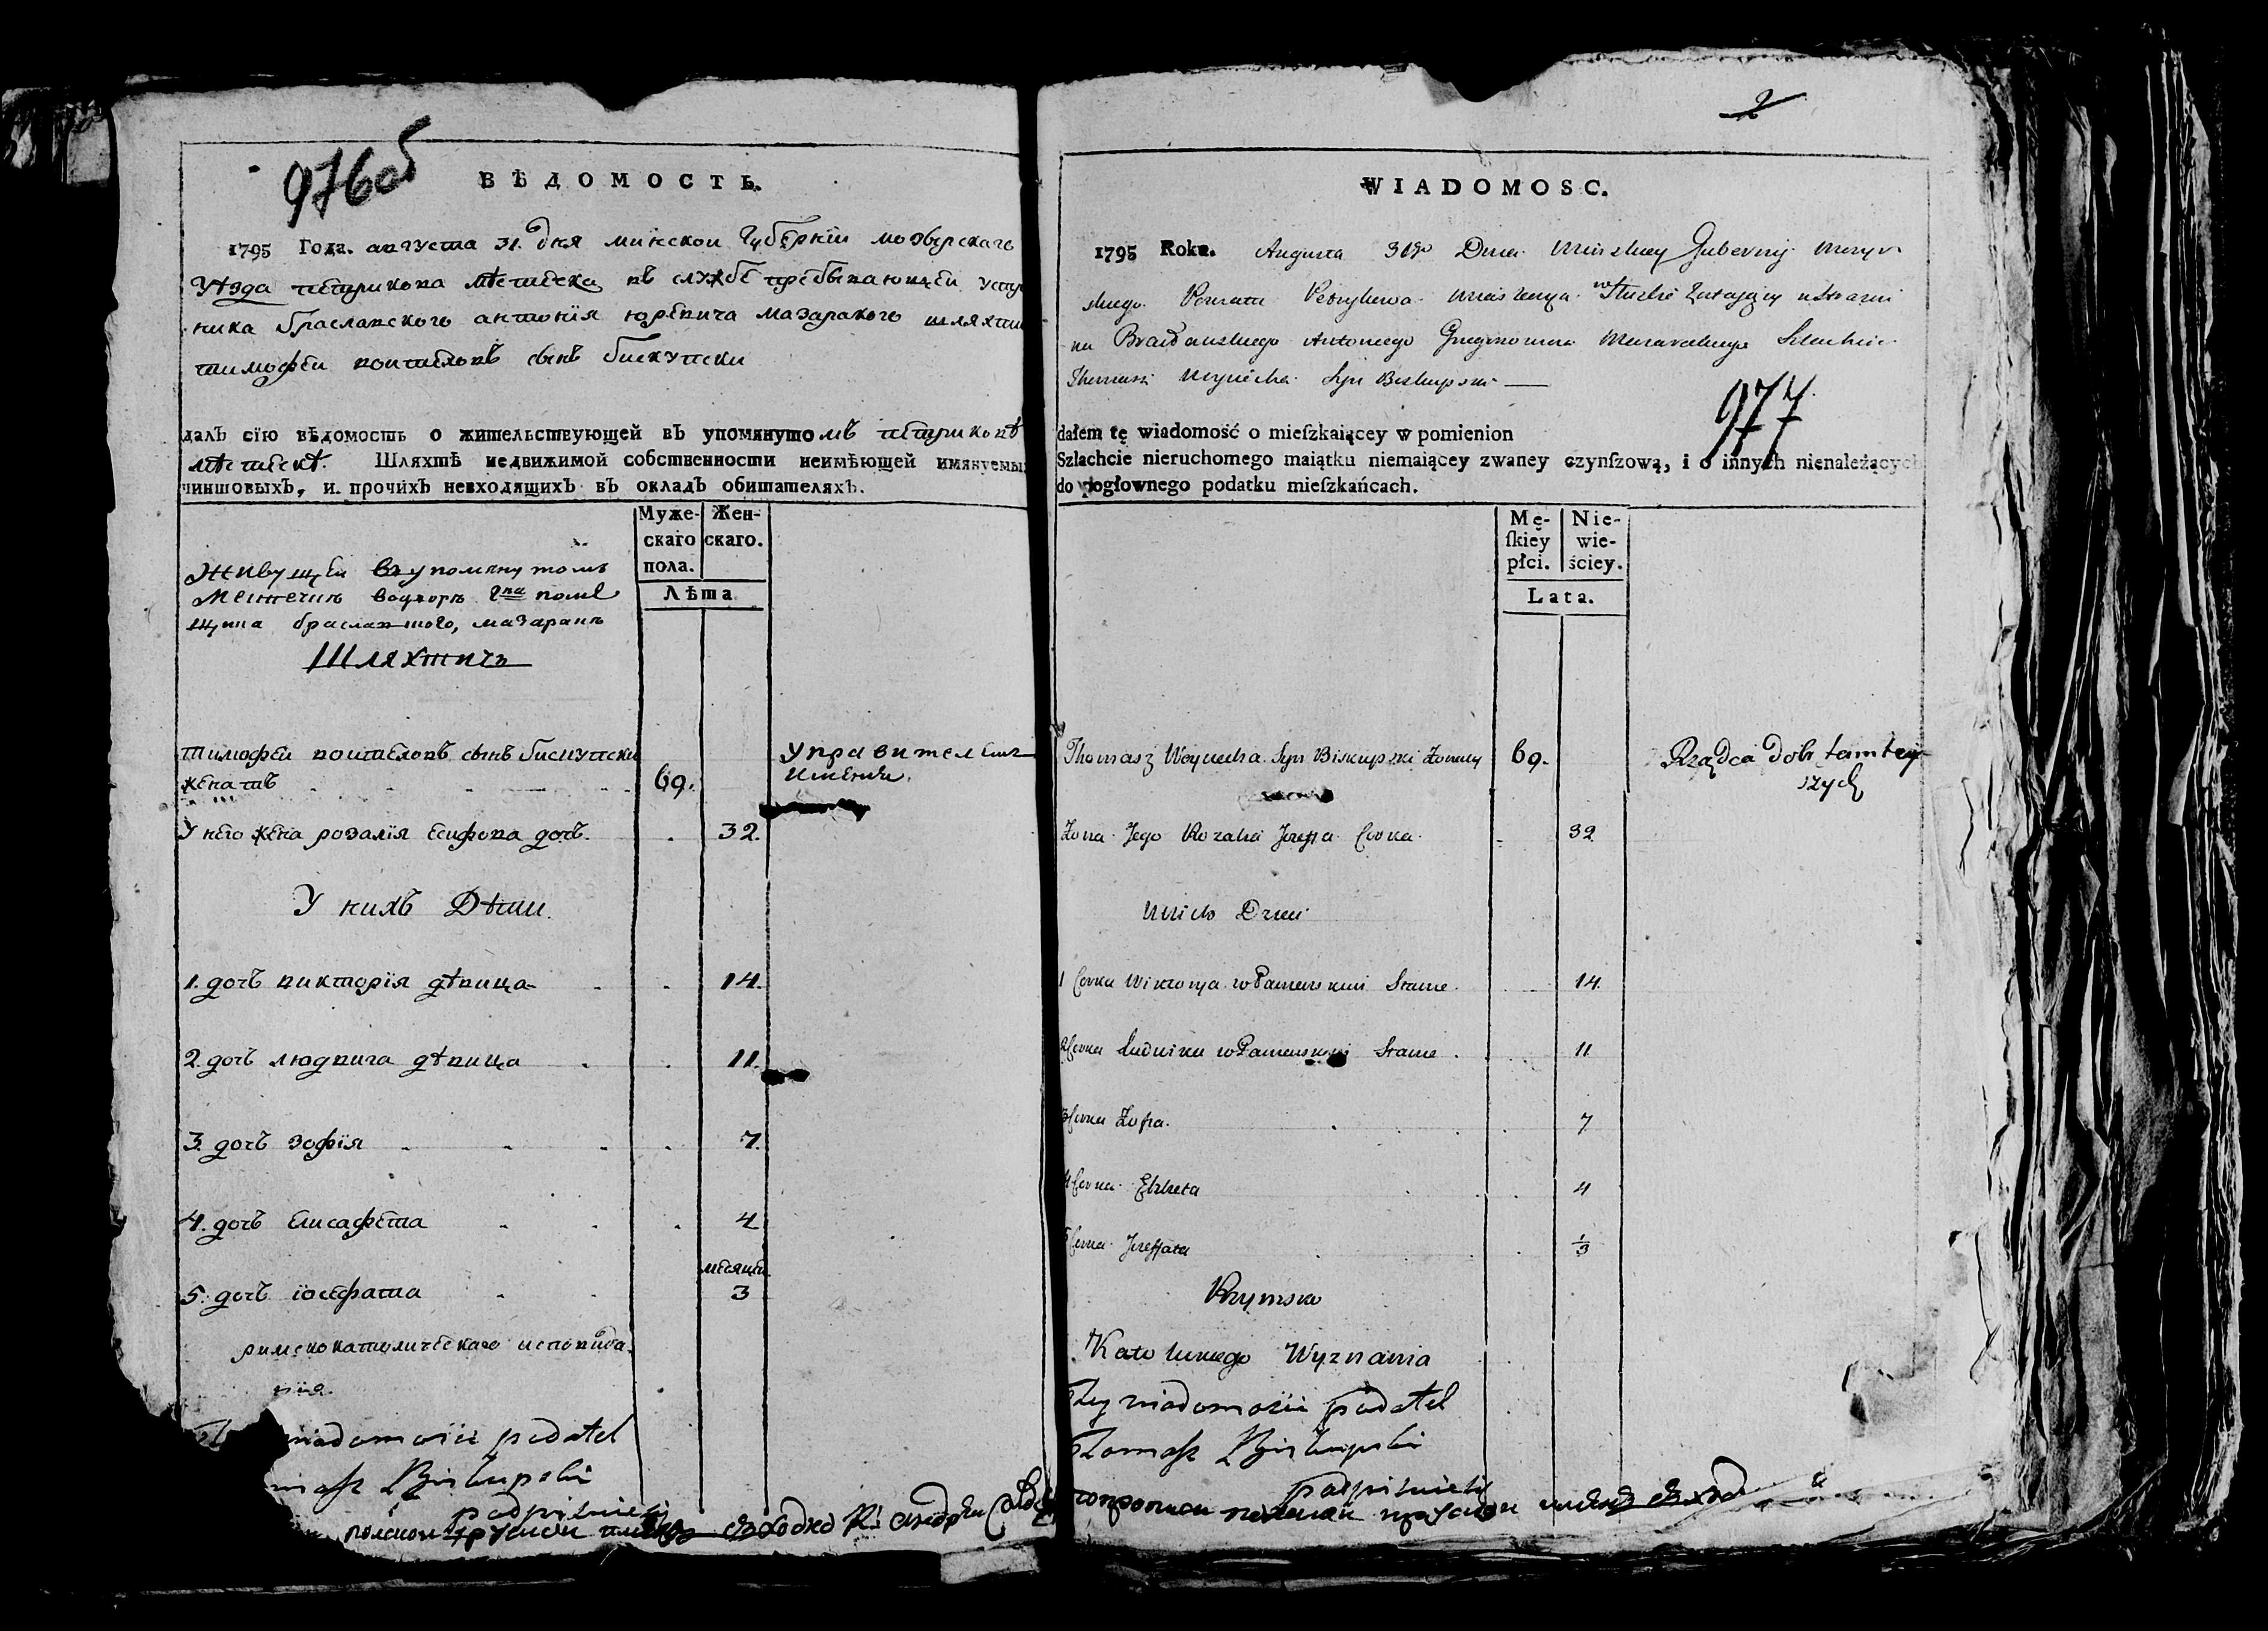 976об
ВѢДОМОСТЬ.
1795 Года. августа 31. дня минской Губернїи мозырскаго
уѣзда петрикова мѣстечка въ службе пребывающей у
ника браславского антонїя юревича мазаракого шляхти
тимофей войтеховъ сынъ бискупски
далъ сїю вѣдомость о жительствующей въ упомянутомъ петриковѣ
мѣстечкѣ. Шляхтѣ недвижимой собственности неимѣющей имянуемы
чиншовыхъ, и прочихъ невходящихъ въ окладъ обитателяхъ.
Муже-
скаго
пола.
Жен-
скаго.
Лѣта
Живущей в упомянутомъ
поме
щика браславского, мазараки
Шляхтичъ
тимофей войтеховъ сынъ бискупски
женатъ 69.
Управителемъ
имения.
У него жена розалїя есифова дочь. 32.
У нихъ Дѣти.
1. дочь викторїя дѣвица 14.
2. дочь людвига дѣвица 11.
3. дочь зофїя 7.
4. дочь елисафета 4
месяцей
5. дочь їосефата 3
римскокатолическаго исповѣда
нїя.
wiadomości podatel
masz Biskupski
podpisuie
полской
2
WIADOMOSC.
1795 Roku. Augusta 31go Dnia Minskiey Gubernij Mozyr
skiego Powiatu Petrykowa Miasteczka w Służbie
na Brasławskiego Antoniego Szlachcic
Thomasz Woyciecha Syn Biskupski
977
dałem tę wiadomość o mieſzkaiącey w pomienion
Szlachcie nieruchomego maiątku niemaiącey zwaney czynſzową, i o innych nienależących
do pogłownego podatku mieſzkańcach.
Mę-
ſkiey
płci.
Nie-
wie-
ściey.
Lata.
Thomasz Woyciecha Syn Biskupski Żonaty 69.
Rządca dobr tamtey
szych
Żona Jego Rozalia Jozefa Corka 32
U nich Dzieci
1 Corka Wiktorya w Panienskim Stanie 14.
2 Corka Ludwika w Panienskim Stanie 11
3 Corka Zofia. 7
4 Corka Elzbieta 4
5 Corka Jozefata 1/3
Rzymsko
Katolickiego Wyznania
Tey wiadomości podatel
Tomasz Biskupski
podpisuie